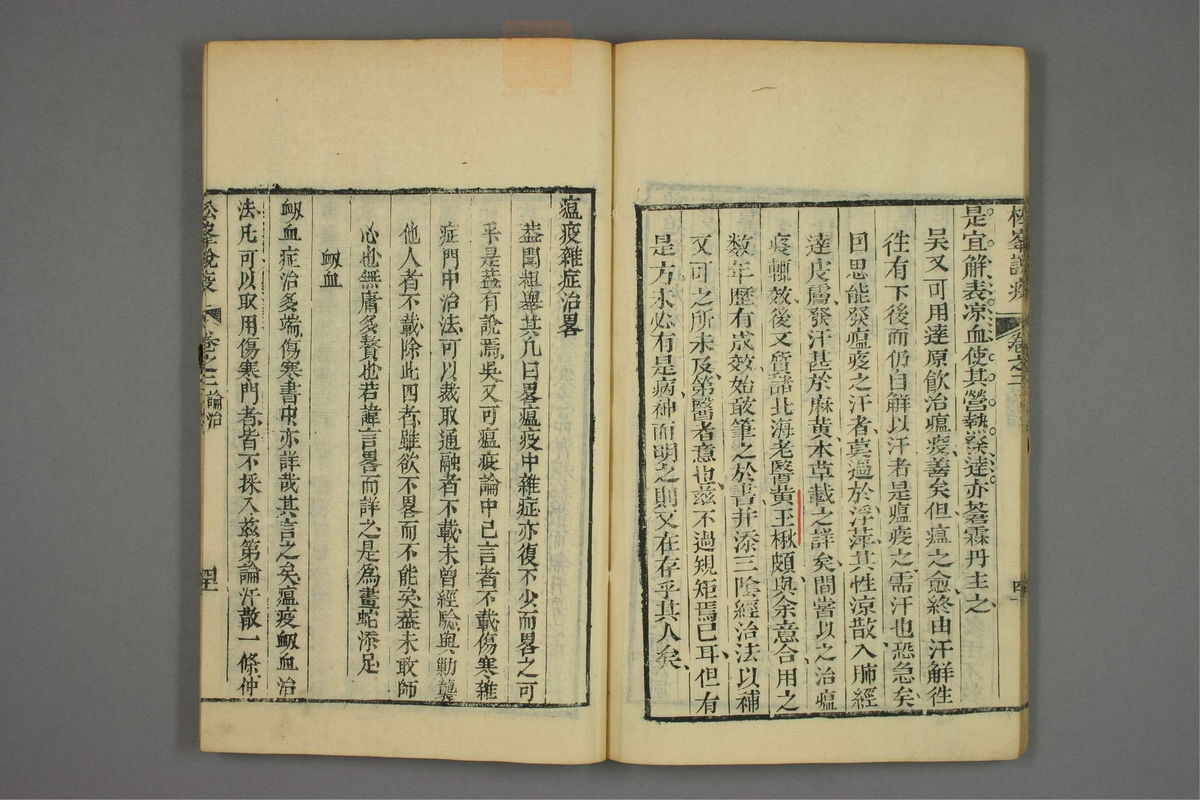 松峯說疫
卷之二
四十
是宜解表凉血使其營熱發達亦茗霖丹主之
吳又可用達原飲治瘟疫善矣但瘟之愈終由汗解徃
徃有下後而仍自解以汗者是瘟疫之需汗也恐急矣
因思能發瘟疫之汗者莫過於浮萍其性凉散入肺經
達皮膚發汗甚於麻黃本草載之詳矣間嘗以之治瘟
疫輒效後又質諸北海老醫黃玉楸頗與余意合用之
数年歷有成效始敢筆之於書并添三陰經治法以補
又可之所未及第醫者意也兹不過規矩焉已耳但有
是方未必有是病神而明之則又在存乎其人矣
瘟疫雜症治畧
葢聞粗舉其凡曰畧瘟疫中雜症亦復不少而畧之可
乎是葢有說焉吳又可瘟疫論中已言者不載傷寒雜
症門中治法可以裁取通融者不載未曾經驗與勦襲
他人者不載除此四者雖欲不畧而不能矣葢未敢師
心也無庸多贅也若諱言畧而詳之是為畫蛇添足
衂血
衂血症治多端傷寒書中亦詳哉其言之矣瘟疫衂血治
法凡可以取用傷寒門者皆不採入兹第論汗散一條仲
松峯說疫
卷之二
論治
四十